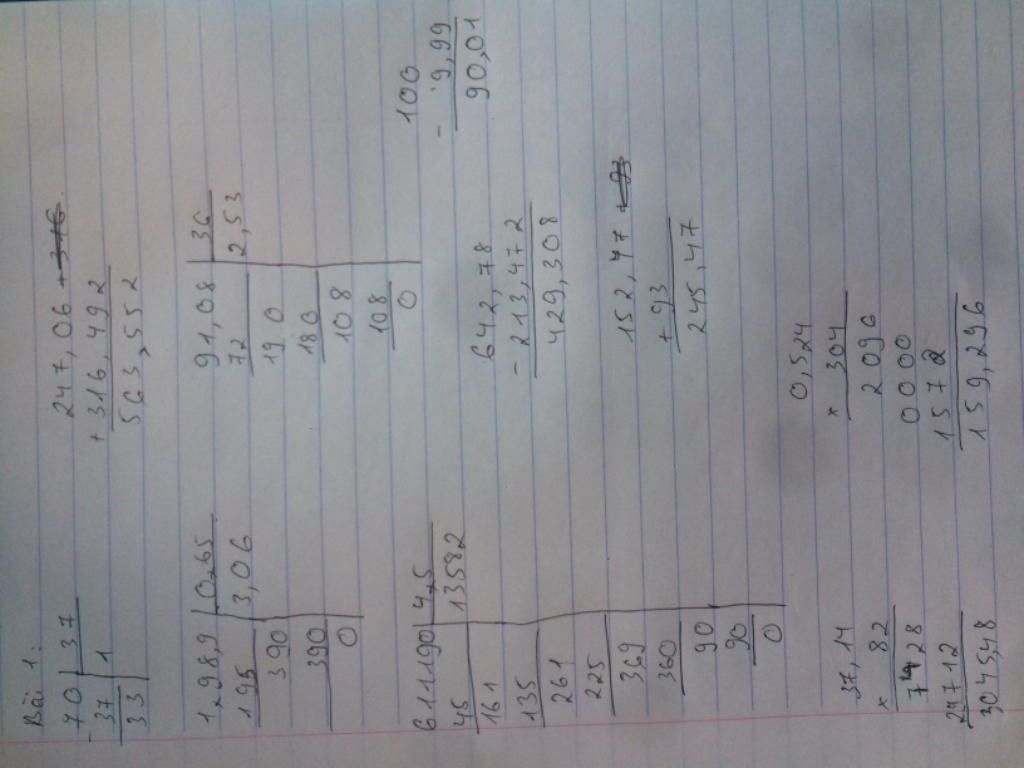 Bài 1:
70 37
- 37 1
33
247,06
+ 316,492
563,552
198,9 0,65
195 3,06
390
390
0
91,08 36
72 2,53
190
180
108
108
0
100
- 9,99
90,01
611190 4,5
45 13582
161
135
261
225
369
360
90
90
0
642,78
- 213,472
429,308
152,47
+ 93
245,47
37,14
× 82
7428
29712
3045,48
0,524
× 304
2096
0000
1572
159,296